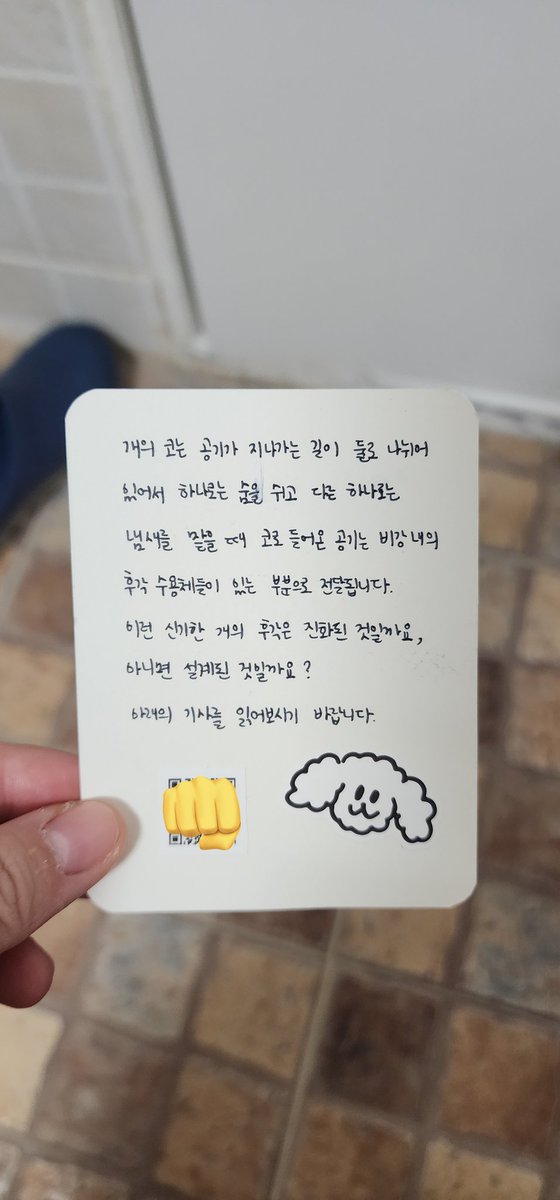 개의 코는 공기가 지나가는 길이 둘로 나뉘어
있어서 하나로는 숨을 쉬고 다른 하나로는
냄새를 맡을 때 코로 들어온 공기는 비강 내의
후각 수용체들이 있는 부분으로 전달됩니다.
이런 신기한 개의 후각은 진화된 것일까요,
아니면 설계된 것일까요?
아래의 기사를 읽어보시기 바랍니다.